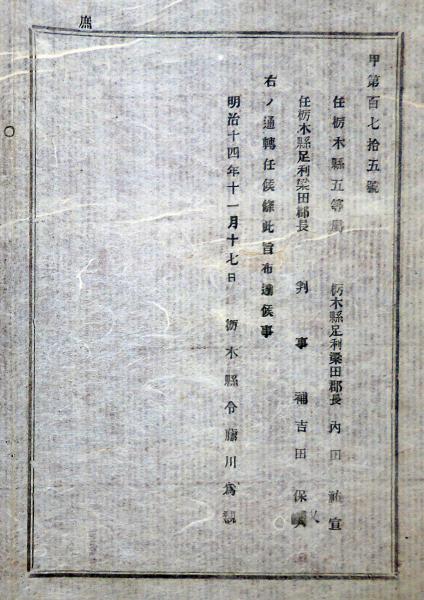 庶
甲第百七拾五號
任栃木縣五等屬 栃木縣足利梁田郡長 內田 宣
任栃木縣足利梁田郡長 判事補 吉田保
右ノ通轉任候條此旨布達候事
明治十四年十一月十七日 栃木縣令 川爲